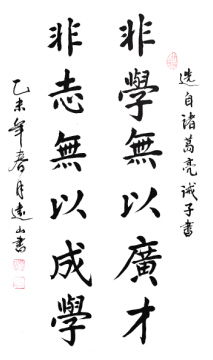 選自諸葛亮誡子書
非學無以廣才
非志無以成學
乙未年春月遠山書